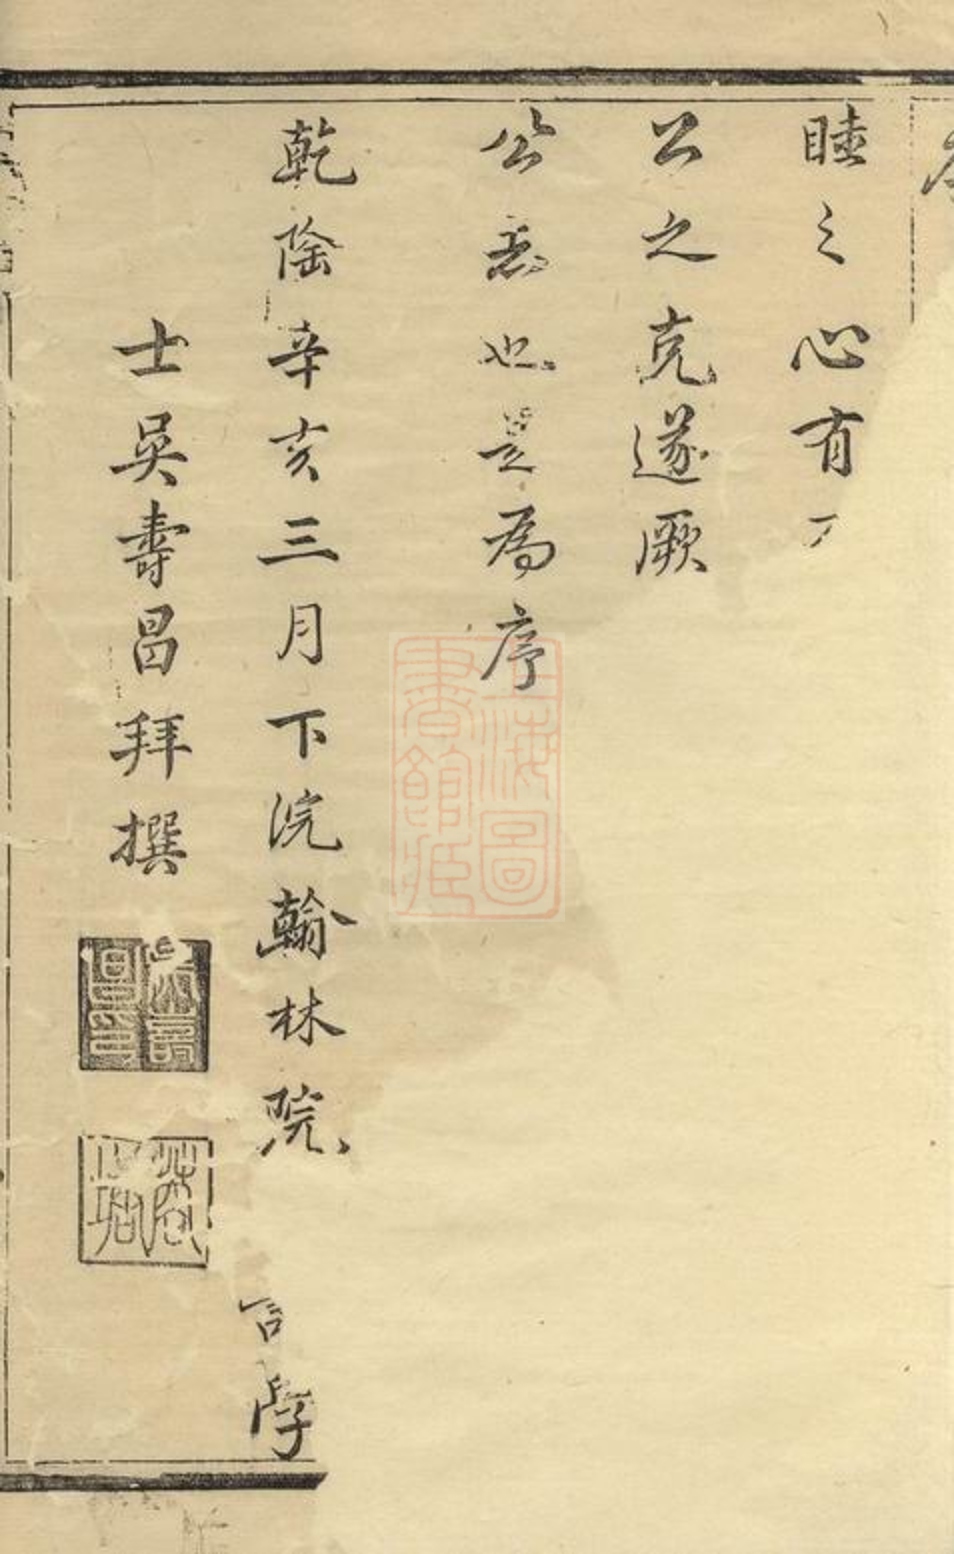 睦之心有
公之克遂厥
公意也是為序
乾隆辛亥三月下浣翰林院
學
士吳壽昌拜撰
吳壽昌印
上海圖書館藏